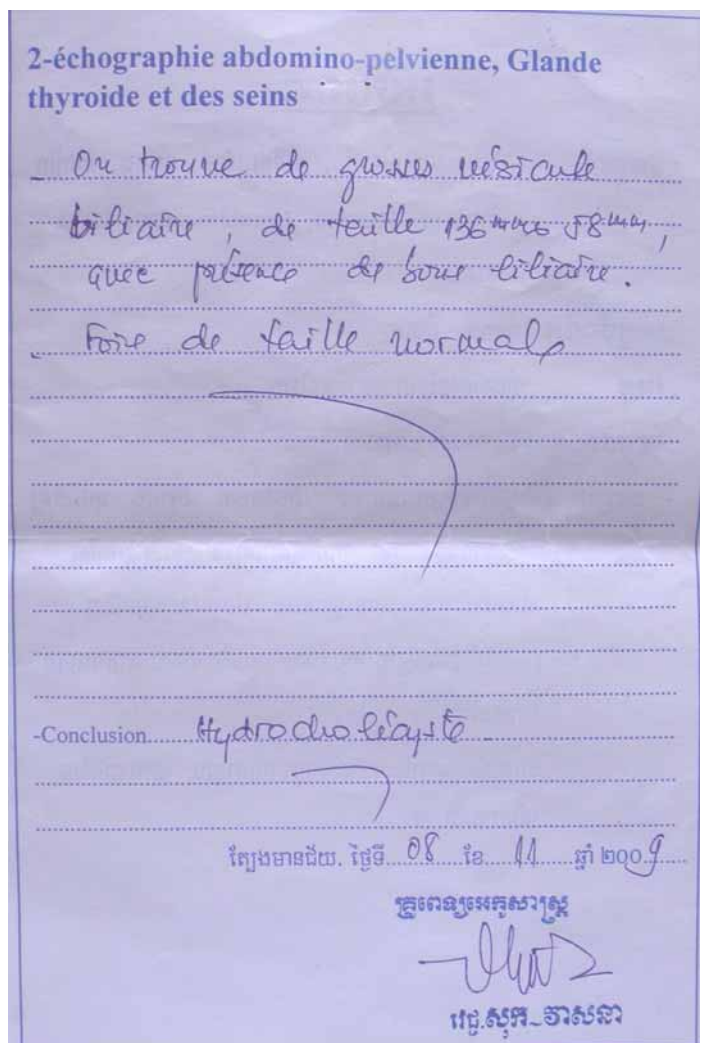 2-échographie abdomino-pelvienne, Glande
thyroide et des seins
- On trouve de grosses vésicule
biliaire, de taille 136 mm 58mm,
avec présence de boue biliaire.
- Foie de taille normale
-Conclusion Hydrocholécyste
ត្បែងមានជ័យ. ថ្ងៃទី 08 ខែ 11 ឆ្នាំ ២០០9
គ្រូពេទ្យអេកូសាស្ត្រ
វេជ្ជ.សុក-វាសនា